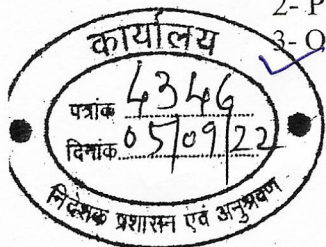 2- P
3- O
कार्यालय
पत्रांक 4346
दिनांक 05/09/22
निदेशक प्रशासन एवं अनुश्रवण